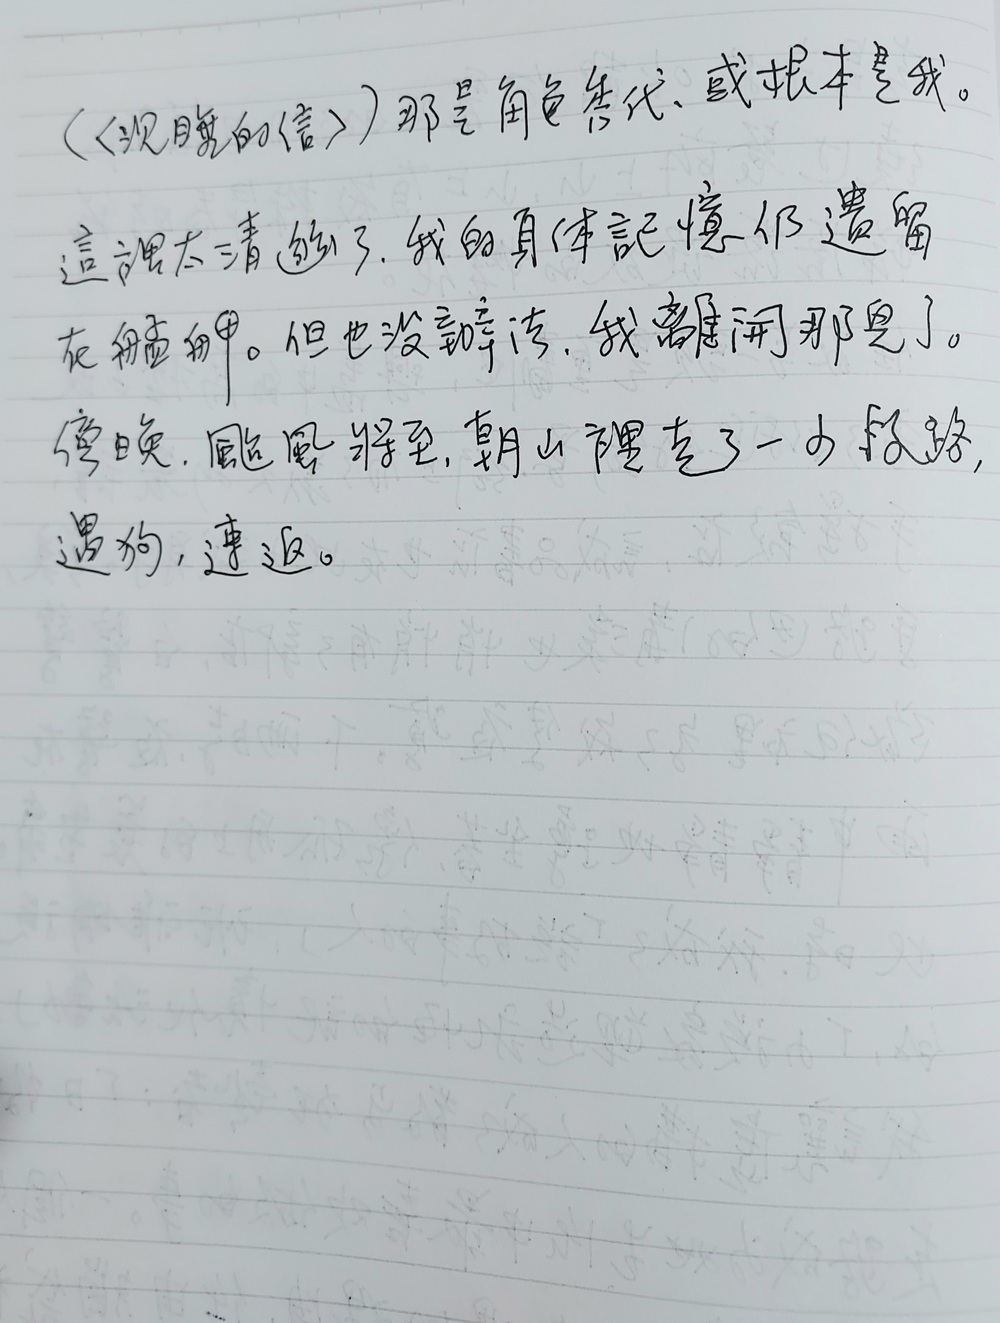 (〈沉晚的信〉)那是角色替代、或根本是我。
這裡太清幽了,我的身体記憶仍遺留
在艋舺。但也没辦法,我離開那兒了。
傍晚,颱風將至,朝山裡走了一小段路,
遇狗,速返。